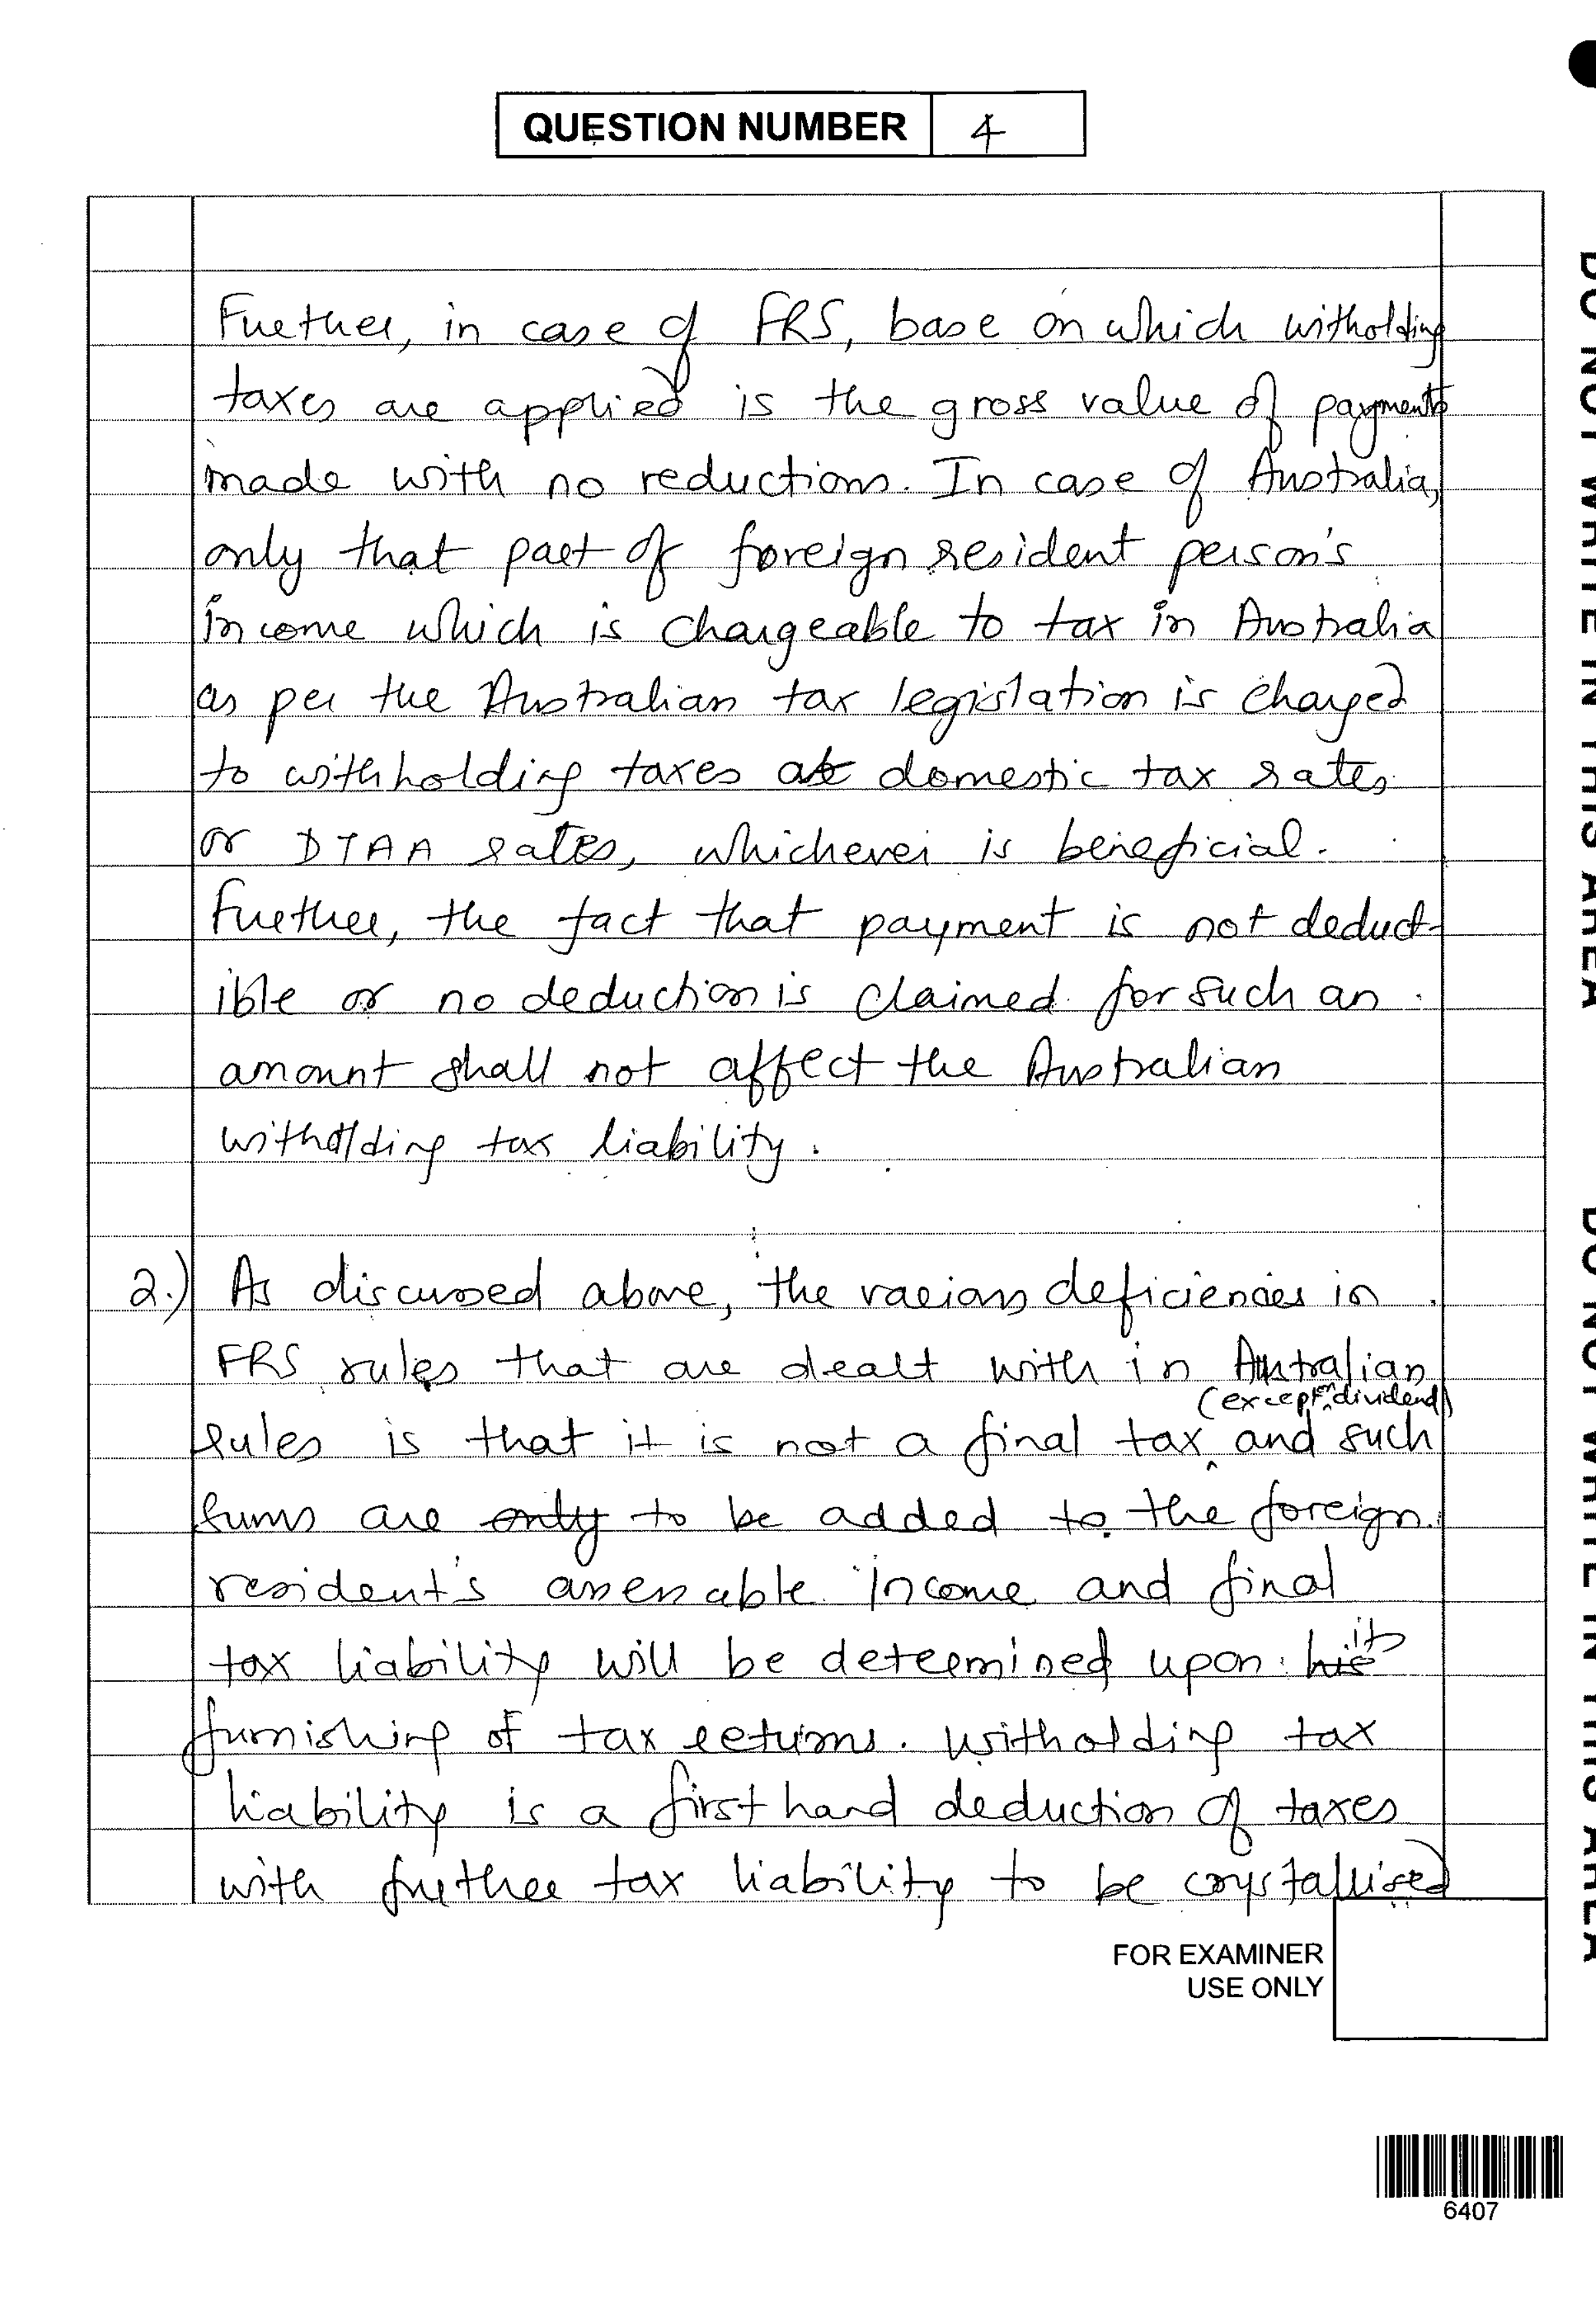 QUESTION NUMBER 4
Further, in case of FRS, base on which witholding
taxes are applied is the gross value of payments
made with no reductions. In case of Australia,
only that part of foreign resident person's
income which is chargeable to tax in Australia
as per the Australian tax legislation is charged
to withholding taxes at domestic tax rates
or DTAA rates, whichever is beneficial.
Further, the fact that payment is not deduct-
ible or no deduction is claimed for such an
amount shall not affect the Australian
witholding tax liability.
2.) As discussed above, the various deficiencies in
FRS rules that are dealt with in Australian
(except on dividend)
rules is that it is not a final tax and such
sums are only to be added to the foreign
resident's assessable income and final
tax liability will be determined upon his its
furnishing of tax returns. Witholding tax
liability is a first hand deduction of taxes
with further tax liability to be crystallised
FOR EXAMINER
USE ONLY
6407
DO NOT WRITE IN THIS AREA
DO NOT WRITE IN THIS AREA